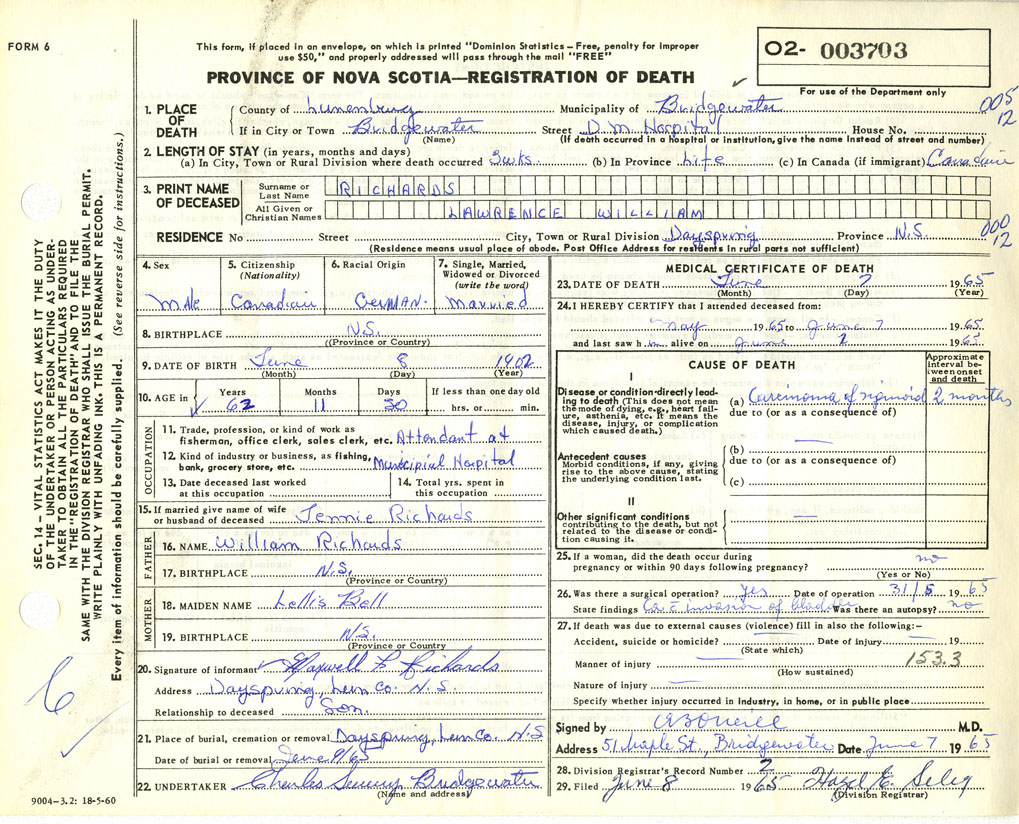 FORM 6
This form, if placed in an envelope, on which is printed "Dominion Statistics – Free, penalty for improper
use $50," and properly addressed will pass through the mail "FREE"
PROVINCE OF NOVA SCOTIA—REGISTRATION OF DEATH
O2- 003703
For use of the Department only
005
12
1. PLACE OF DEATH
County of Lunenburg Municipality of Bridgewater
If in City or Town Bridgewater Street D.M. Hospital House No.
(Name) (If death occurred in a hospital or institution, give the name instead of street and number)
2. LENGTH OF STAY (in years, months and days)
(a) In City, Town or Rural Division where death occurred 3 wks. (b) In Province Life (c) In Canada (if immigrant) Canadian
3. PRINT NAME OF DECEASED
Surname or Last Name RICHARDS
All Given or Christian Names LAWRENCE WILLIAM
000
12
RESIDENCE No Street City, Town or Rural Division Dayspring Province N.S.
(Residence means usual place of abode. Post Office Address for residents in rural parts not sufficient)
4. Sex
Male
5. Citizenship (Nationality)
Canadian
6. Racial Origin
German.
7. Single, Married, Widowed or Divorced (write the word)
Married
8. BIRTHPLACE N.S.
(Province or Country)
9. DATE OF BIRTH June 8 1902
(Month) (Day) (Year)
10. AGE in Years Months Days If less than one day old
62 11 30 hrs. or min.
OCCUPATION
11. Trade, profession, or kind of work as
fisherman, office clerk, sales clerk, etc. Attendant at
12. Kind of industry or business, as fishing,
bank, grocery store, etc. Municipial Hospital
13. Date deceased last worked
at this occupation
14. Total yrs. spent in
this occupation
15. If married give name of wife
or husband of deceased Jennie Richards
FATHER
16. NAME William Richards
17. BIRTHPLACE N.S.
(Province or Country)
MOTHER
18. MAIDEN NAME Lellis Bell
19. BIRTHPLACE N.S.
(Province or Country)
20. Signature of informant Maxwell Richards
Address Dayspring, Lun Co. N.S.
Relationship to deceased Son.
21. Place of burial, cremation or removal Dayspring, Lun Co. N.S
Date of burial or removal June 9/65
22. UNDERTAKER Charles Bridgewater
(Name and address)
9004–3.2: 18-5-60
MEDICAL CERTIFICATE OF DEATH
23. DATE OF DEATH June 7 1965
(Month) (Day) (Year)
24. I HEREBY CERTIFY that I attended deceased from:
May 1965 to June 7 1965
and last saw him alive on June 1965
CAUSE OF DEATH
Approximate interval between onset and death
I
Disease or condition directly leading to death (This does not mean the mode of dying, e.g., heart failure, asthenia, etc. It means the disease, injury, or complication which caused death.)
(a) Carcinoma of sigmoid 2 months
due to (or as a consequence of)
Antecedent causes
Morbid conditions, if any, giving rise to the above cause, stating the underlying condition last.
(b)
due to (or as a consequence of)
(c)
II
Other significant conditions
contributing to the death, but not related to the disease or condition causing it.
25. If a woman, did the death occur during
pregnancy or within 90 days following pregnancy? no
(Yes or No)
26. Was there a surgical operation? yes Date of operation 31/5 1965
State findings Ca c̄ invasion of bladder Was there an autopsy? no
27. If death was due to external causes (violence) fill in also the following:–
Accident, suicide or homicide? Date of injury 19
(State which)
Manner of injury 153.3
(How sustained)
Nature of injury
Specify whether injury occurred in industry, in home, or in public place
Signed by M.D.
Address 51 Maple St., Bridgewater Date June 7 1965
28. Division Registrar's Record Number 2
29. Filed June 8 1965 Hazel E. Selig
(Division Registrar)
SEC. 14 – VITAL STATISTICS ACT MAKES IT THE DUTY
OF THE UNDERTAKER OR PERSON ACTING AS UNDER-
TAKER TO OBTAIN ALL THE PARTICULARS REQUIRED
IN THE "REGISTRATION OF DEATH" AND TO FILE THE
SAME WITH THE DIVISION REGISTRAR WHO SHALL ISSUE THE BURIAL PERMIT.
WRITE PLAINLY WITH UNFADING INK. THIS IS A PERMANENT RECORD.
Every item of information should be carefully supplied. (See reverse side for instructions.)
6